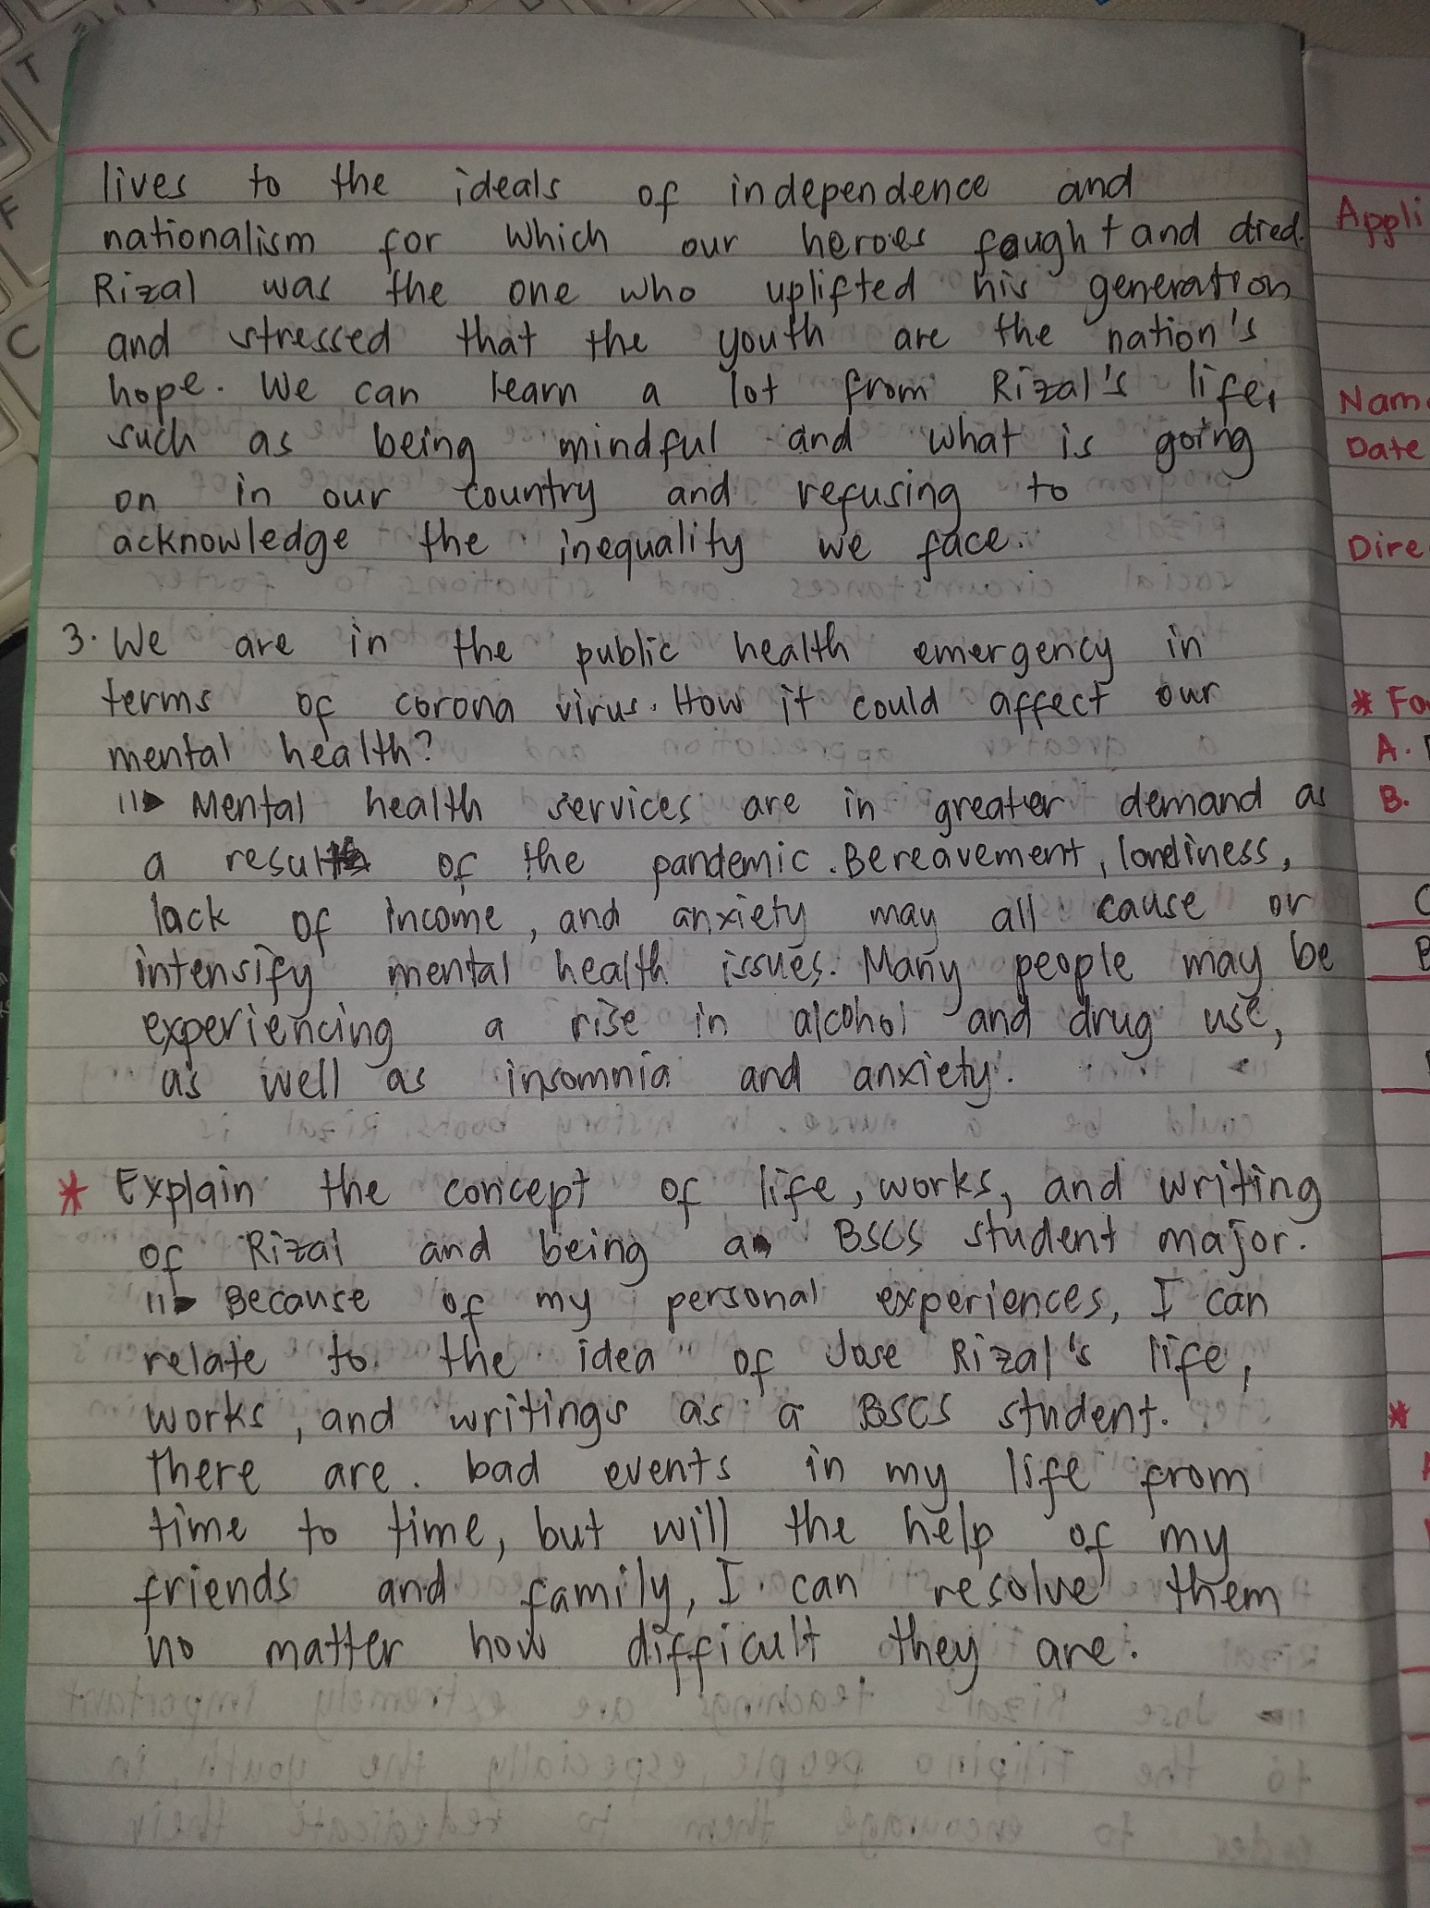 lives to the ideals of independence and
nationalism for which our heroes faught and died.
Rizal was the one who uplifted his generation
and stressed that the youth are the nation's
hope. We can learn a lot from Rizal's life,
such as being mindful and what is going
on in our country and refusing to
acknowledge the inequality we face.
3. We are in the public health emergency in
terms of corona virus. How it could affect our
mental health?
Mental health services are in greater demand as
a result of the pandemic. Bereavement, loneliness,
lack of income, and anxiety may all cause or
intensify mental health issues. Many people may be
experiencing a rise in alcohol and drug use,
as well as insomnia and anxiety.
* Explain the concept of life, works, and writing
of Rizal and being a BSCS student major.
Because of my personal experiences, I can
relate to the idea of Jose Rizal's life,
works, and writings as a BSCS student.
There are bad events in my life from
time to time, but will the help of my
friends and family, I can resolve them
no matter how difficult they are.
Appli
Nam
Date
Dire
* Fo
A.
B.
C
*